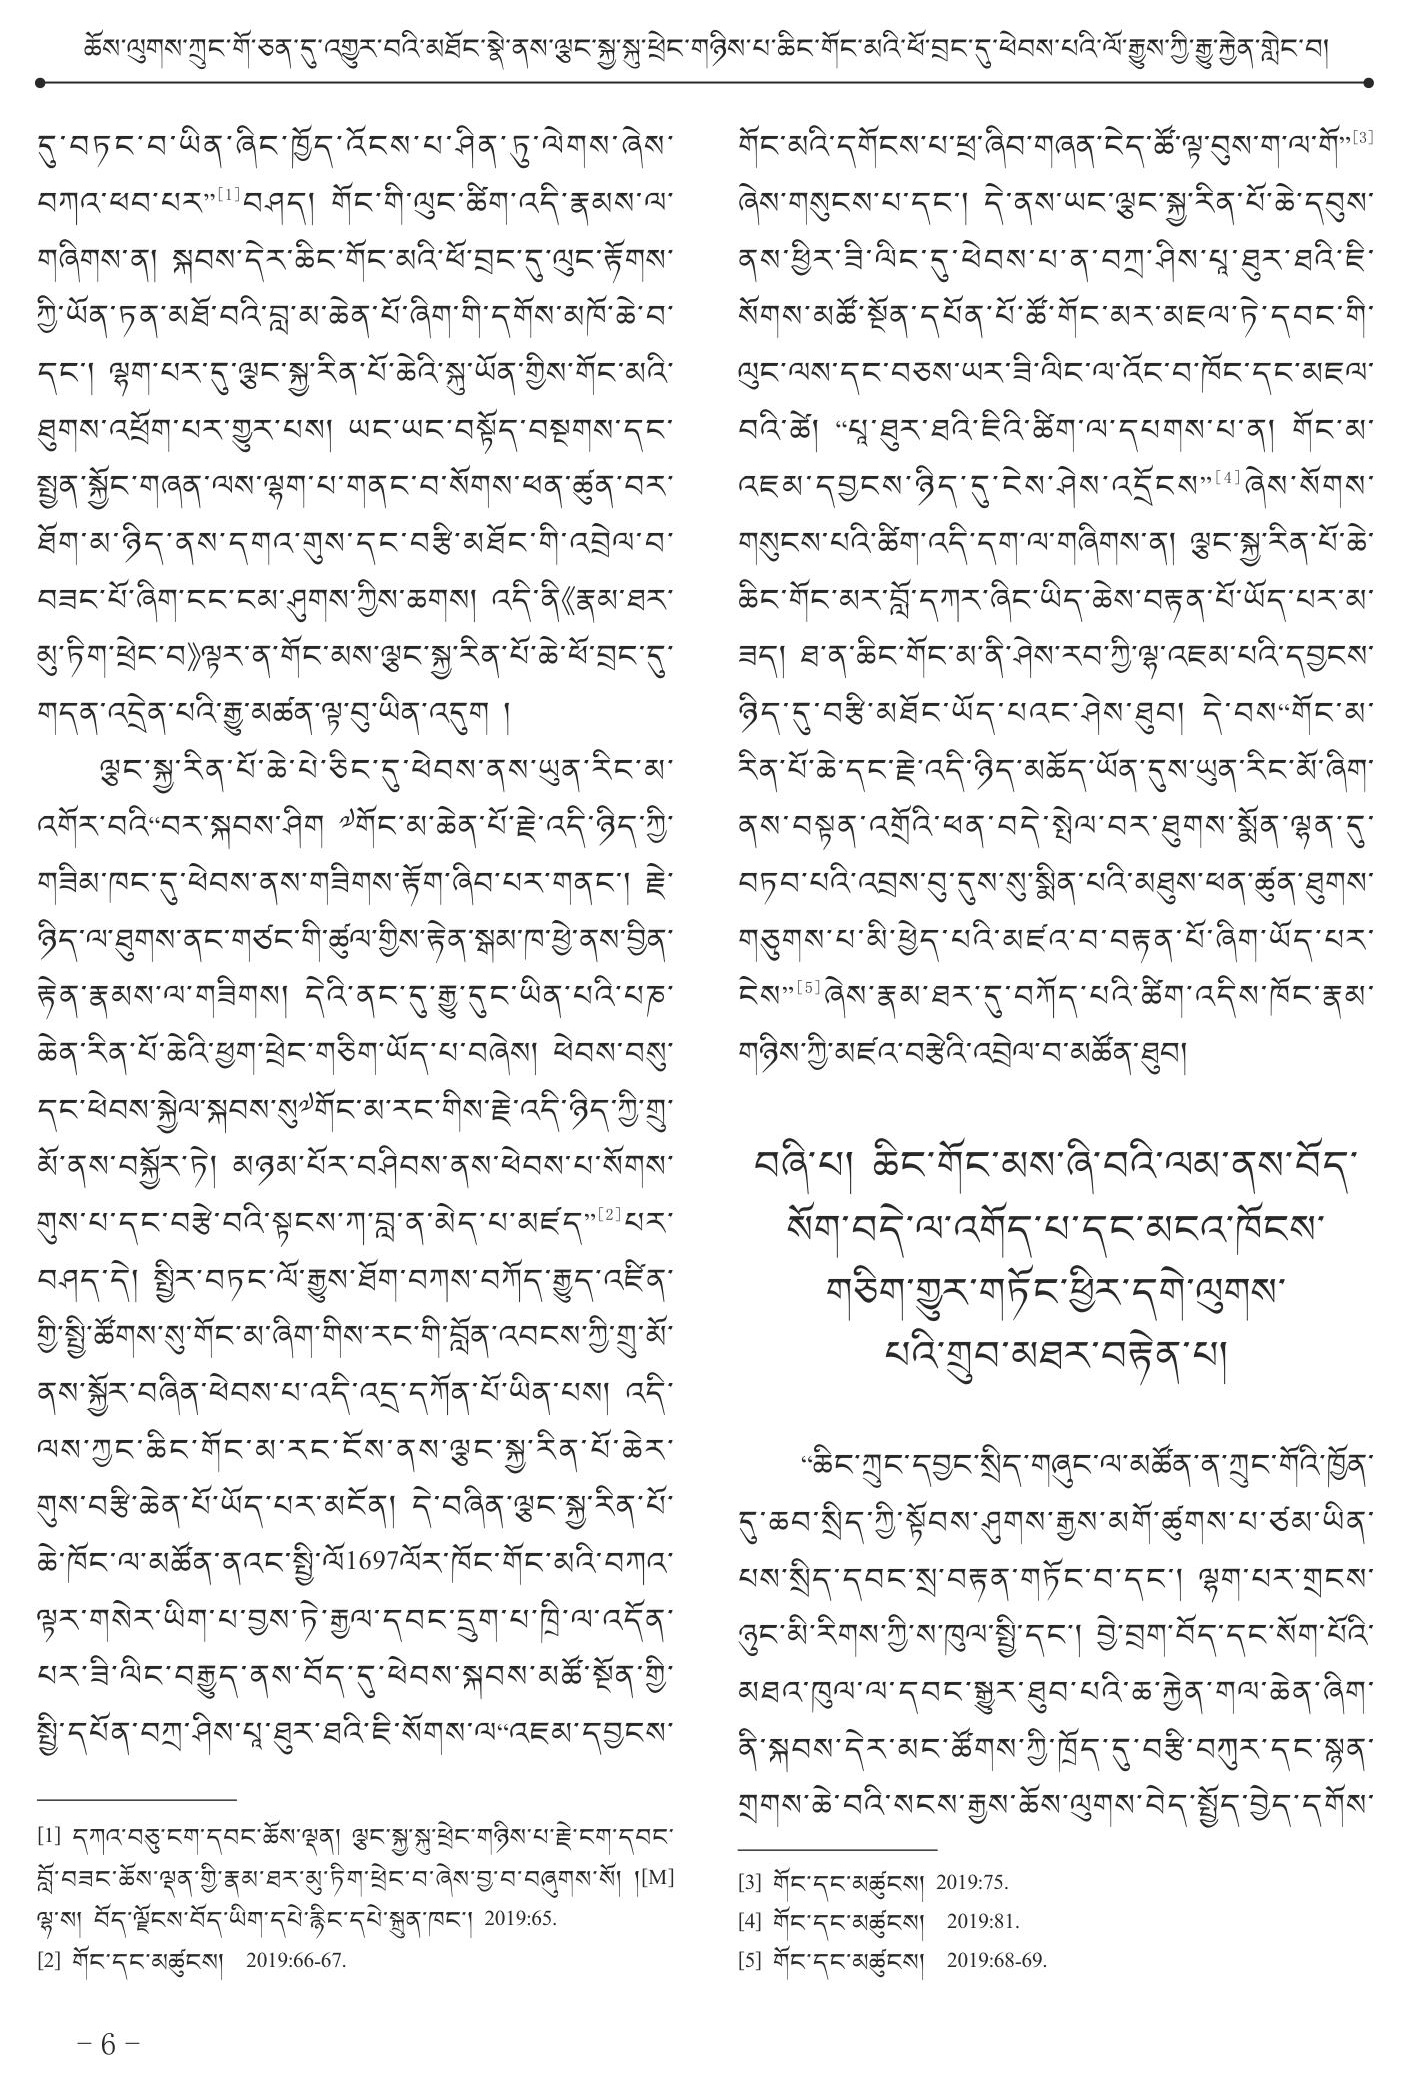 ཆོས་ལུགས་ཀྲུང་གོ་ཅན་དུ་འགྱུར་བའི་མཐོང་སྣེ་ནས་ལྕང་སྐྱ་སྐུ་ཕྲེང་གཉིས་པ་ཆིང་གོང་མའི་ཕོ་བྲང་དུ་ཕེབས་པའི་ལོ་རྒྱུས་ཀྱི་རྒྱུ་རྐྱེན་གླེང་བ།
དུ་བཏང་བ་ཡིན་ཞིང་ཁྱོད་འོངས་པ་ཤིན་ཏུ་ལེགས་ཞེས་
བཀའ་ཕབ་པར”[1]བཤད། གོང་གི་ལུང་ཚིག་འདི་རྣམས་ལ་
གཞིགས་ན། སྐབས་དེར་ཆིང་གོང་མའི་ཕོ་བྲང་དུ་ལུང་རྟོགས་
ཀྱི་ཡོན་ཏན་མཐོ་བའི་བླ་མ་ཆེན་པོ་ཞིག་གི་དགོས་མཁོ་ཆེ་བ་
དང་། ལྷག་པར་དུ་ལྕང་སྐྱ་རིན་པོ་ཆེའི་སྐུ་ཡོན་གྱིས་གོང་མའི་
ཐུགས་འཕྲོག་པར་གྱུར་པས། ཡང་ཡང་བསྟོད་བསྔགས་དང་
སྤྱན་སྐྱོང་གཞན་ལས་ལྷག་པ་གནང་བ་སོགས་ཕན་ཚུན་བར་
ཐོག་མ་ཉིད་ནས་དགའ་གུས་དང་བརྩི་མཐོང་གི་འབྲེལ་བ་
བཟང་པོ་ཞིག་ངང་ངམ་ཤུགས་ཀྱིས་ཆགས། འདི་ནི《རྣམ་ཐར་
མུ་ཏིག་ཕྲེང་བ》ལྟར་ན་གོང་མས་ལྕང་སྐྱ་རིན་པོ་ཆེ་ཕོ་བྲང་དུ་
གདན་འདྲེན་པའི་རྒྱུ་མཚན་ལྟ་བུ་ཡིན་འདུག །
ལྕང་སྐྱ་རིན་པོ་ཆེ་པེ་ཅིང་དུ་ཕེབས་ནས་ཡུན་རིང་མ་
འགོར་བའི“བར་སྐབས་ཤིག ༧གོང་མ་ཆེན་པོ་རྗེ་འདི་ཉིད་ཀྱི་
གཟིམ་ཁང་དུ་ཕེབས་ནས་གཟིགས་རྟོག་ཞིབ་པར་གནང་། རྗེ་
ཉིད་ལ་ཐུགས་ནང་གཙང་གི་ཚུལ་གྱིས་རྟེན་སྒམ་ཁ་ཕྱེ་ནས་བྱིན་
རྟེན་རྣམས་ལ་གཟིགས། དེའི་ནང་དུ་རྒྱུ་དུང་ཡིན་པའི་པཎ་
ཆེན་རིན་པོ་ཆེའི་ཕྱག་ཕྲེང་གཅིག་ཡོད་པ་བཞེས། ཕེབས་བསུ་
དང་ཕེབས་སྐྱེལ་སྐབས་སུ༧གོང་མ་རང་གིས་རྗེ་འདི་ཉིད་ཀྱི་གྲུ་
མོ་ནས་བསྐྱོར་ཏེ། མཉམ་པོར་བཤིབས་ནས་ཕེབས་པ་སོགས་
གུས་པ་དང་བརྩེ་བའི་སྟངས་ཀ་བླ་ན་མེད་པ་མཛད”[2]པར་
བཤད་དེ། སྤྱིར་བཏང་ལོ་རྒྱུས་ཐོག་བཀས་བཀོད་རྒྱུད་འཛིན་
གྱི་སྤྱི་ཚོགས་སུ་གོང་མ་ཞིག་གིས་རང་གི་བློན་འབངས་ཀྱི་གྲུ་མོ་
ནས་སྐྱོར་བཞིན་ཕེབས་པ་འདི་འདྲ་དཀོན་པོ་ཡིན་པས། འདི་
ལས་ཀྱང་ཆིང་གོང་མ་རང་ངོས་ནས་ལྕང་སྐྱ་རིན་པོ་ཆེར་
གུས་བརྩི་ཆེན་པོ་ཡོད་པར་མངོན། དེ་བཞིན་ལྕང་སྐྱ་རིན་པོ་
ཆེ་ཁོང་ལ་མཚོན་ནའང་སྤྱི་ལོ1697ལོར་ཁོང་གོང་མའི་བཀའ་
ལྟར་གསེར་ཡིག་པ་བྱས་ཏེ་རྒྱལ་དབང་དྲུག་པ་ཁྲི་ལ་འདོན་
པར་ཟི་ལིང་བརྒྱུད་ནས་བོད་དུ་ཕེབས་སྐབས་མཚོ་སྔོན་གྱི་
སྤྱི་དཔོན་བཀྲ་ཤིས་པཱ་ཐུར་ཐའི་ཇི་སོགས་ལ“འཇམ་དབྱངས་
[1] དཀའ་བཅུ་ངག་དབང་ཆོས་ལྡན། ལྕང་སྐྱ་སྐུ་ཕྲེང་གཉིས་པ་རྗེ་ངག་དབང་
བློ་བཟང་ཆོས་ལྡན་གྱི་རྣམ་ཐར་མུ་ཏིག་ཕྲེང་བ་ཞེས་བྱ་བ་བཞུགས་སོ། །[M]
ལྷ་ས། བོད་ལྗོངས་བོད་ཡིག་དཔེ་རྙིང་དཔེ་སྐྲུན་ཁང་། 2019:65.
[2] གོང་དང་མཚུངས། 2019:66-67.
གོང་མའི་དགོངས་པ་ཕྲ་ཞིབ་གཞན་ངེད་ཚོ་ལྟ་བུས་ག་ལ་གོ”[3]
ཞེས་གསུངས་པ་དང་། དེ་ནས་ཡང་ལྕང་སྐྱ་རིན་པོ་ཆེ་དབུས་
ནས་ཕྱིར་ཟི་ལིང་དུ་ཕེབས་པ་ན་བཀྲ་ཤིས་པཱ་ཐུར་ཐའི་ཇི་
སོགས་མཚོ་སྔོན་དཔོན་པོ་ཚོ་གོང་མར་མཇལ་ཏེ་དབང་གི་
ལུང་ལས་དང་བཅས་ཡར་ཟི་ལིང་ལ་འོང་བ་ཁོང་དང་མཇལ་
བའི་ཚེ། “པཱ་ཐུར་ཐའི་ཇིའི་ཚིག་ལ་དཔགས་པ་ན། གོང་མ་
འཇམ་དབྱངས་ཉིད་དུ་ངེས་ཤེས་འདྲོངས”[4]ཞེས་སོགས་
གསུངས་པའི་ཚིག་འདི་དག་ལ་གཞིགས་ན། ལྕང་སྐྱ་རིན་པོ་ཆེ་
ཆིང་གོང་མར་བློ་དཀར་ཞིང་ཡིད་ཆེས་བརྟན་པོ་ཡོད་པར་མ་
ཟད། ཐ་ན་ཆིང་གོང་མ་ནི་ཤེས་རབ་ཀྱི་ལྷ་འཇམ་པའི་དབྱངས་
ཉིད་དུ་བརྩི་མཐོང་ཡོད་པའང་ཤེས་ཐུབ། དེ་བས“གོང་མ་
རིན་པོ་ཆེ་དང་རྗེ་འདི་ཉིད་མཆོད་ཡོན་དུས་ཡུན་རིང་མོ་ཞིག་
ནས་བསྟན་འགྲོའི་ཕན་བདེ་སྤེལ་བར་ཐུགས་སྨོན་ལྷན་དུ་
བཏབ་པའི་འབྲས་བུ་དུས་སུ་སྨིན་པའི་མཐུས་ཕན་ཚུན་ཐུགས་
གཅུགས་པ་མི་ཕྱེད་པའི་མཛའ་བ་བརྟན་པོ་ཞིག་ཡོད་པར་
ངེས”[5]ཞེས་རྣམ་ཐར་དུ་བཀོད་པའི་ཚིག་འདིས་ཁོང་རྣམ་
གཉིས་ཀྱི་མཛའ་བརྩེའི་འབྲེལ་བ་མཚོན་ཐུབ།
བཞི་པ། ཆིང་གོང་མས་ཞི་བའི་ལམ་ནས་བོད་
སོག་བདེ་ལ་འགོད་པ་དང་མངའ་ཁོངས་
གཅིག་གྱུར་གཏོང་ཕྱིར་དགེ་ལུགས་
པའི་གྲུབ་མཐར་བརྟེན་པ།
“ཆིང་ཀྲུང་དབྱང་སྲིད་གཞུང་ལ་མཚོན་ན་ཀྲུང་གོའི་ཁྱོན་
དུ་ཆབ་སྲིད་ཀྱི་སྟོབས་ཤུགས་རྒྱས་མགོ་ཚུགས་པ་ཙམ་ཡིན་
པས་སྲིད་དབང་སྲ་བརྟན་གཏོང་བ་དང་། ལྷག་པར་གྲངས་
ཉུང་མི་རིགས་ཀྱི་ས་ཁུལ་སྤྱི་དང་། བྱེ་བྲག་བོད་དང་སོག་པོའི་
མཐའ་ཁུལ་ལ་དབང་སྒྱུར་ཐུབ་པའི་ཆ་རྐྱེན་གལ་ཆེན་ཞིག་
ནི་སྐབས་དེར་མང་ཚོགས་ཀྱི་ཁྲོད་དུ་བརྩི་བཀུར་དང་སྙན་
གྲགས་ཆེ་བའི་སངས་རྒྱས་ཆོས་ལུགས་བེད་སྤྱོད་བྱེད་དགོས་
[3] གོང་དང་མཚུངས། 2019:75.
[4] གོང་དང་མཚུངས། 2019:81.
[5] གོང་དང་མཚུངས། 2019:68-69.
– 6 –